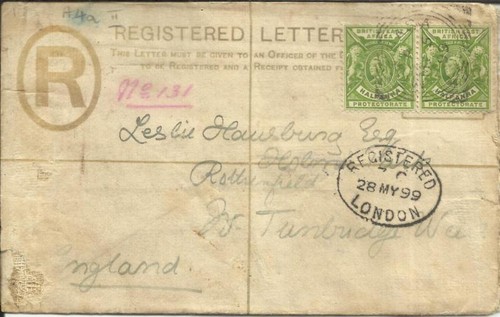 A4a II
REGISTERED LETTER
THIS LETTER MUST BE GIVEN TO AN OFFICER OF THE
TO BE REGISTERED AND A RECEIPT OBTAINED
R
No 131
BRITISH EAST
AFRICA
HALF ANNA
PROTECTORATE
BRITISH EAST
AFRICA
HALF ANNA
PROTECTORATE
Leslie Hausburg Esq
Rotherfield
Nr. Tunbridge We
England
REGISTERED
28 MY 99
LONDON